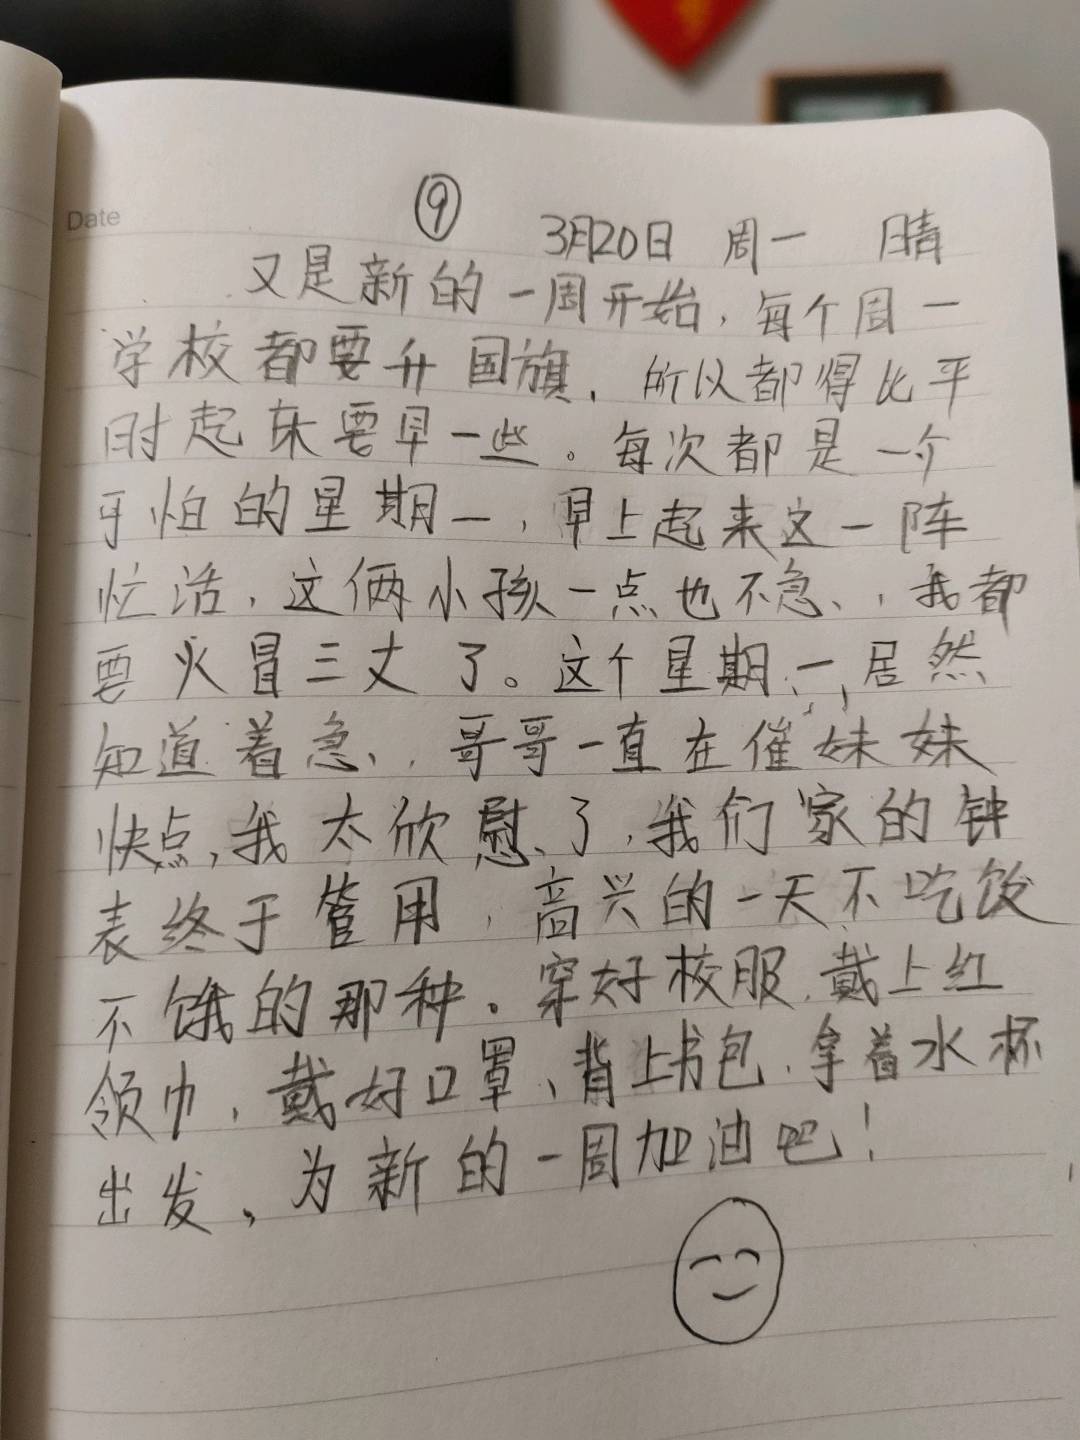 Date
⑨
3月20日 周一 晴
又是新的一周开始，每个周一
学校都要升国旗，所以都得比平
时起床要早一些。每次都是一个
可怕的星期一，早上起来这一阵
忙活，这俩小孩一点也不急，我都
要火冒三丈了。这个星期一，居然
知道着急，哥哥一直在催妹妹
快点，我太欣慰了，我们家的钟
表终于管用，高兴的一天不吃饭
不饿的那种。穿好校服，戴上红
领巾，戴好口罩、背上书包，拿着水杯
出发，为新的一周加油吧！